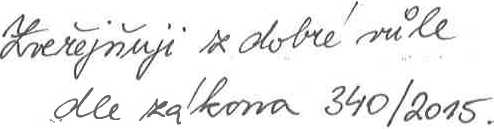 Zveřejňuji z dobré vůle
dle zákona 340/2015.